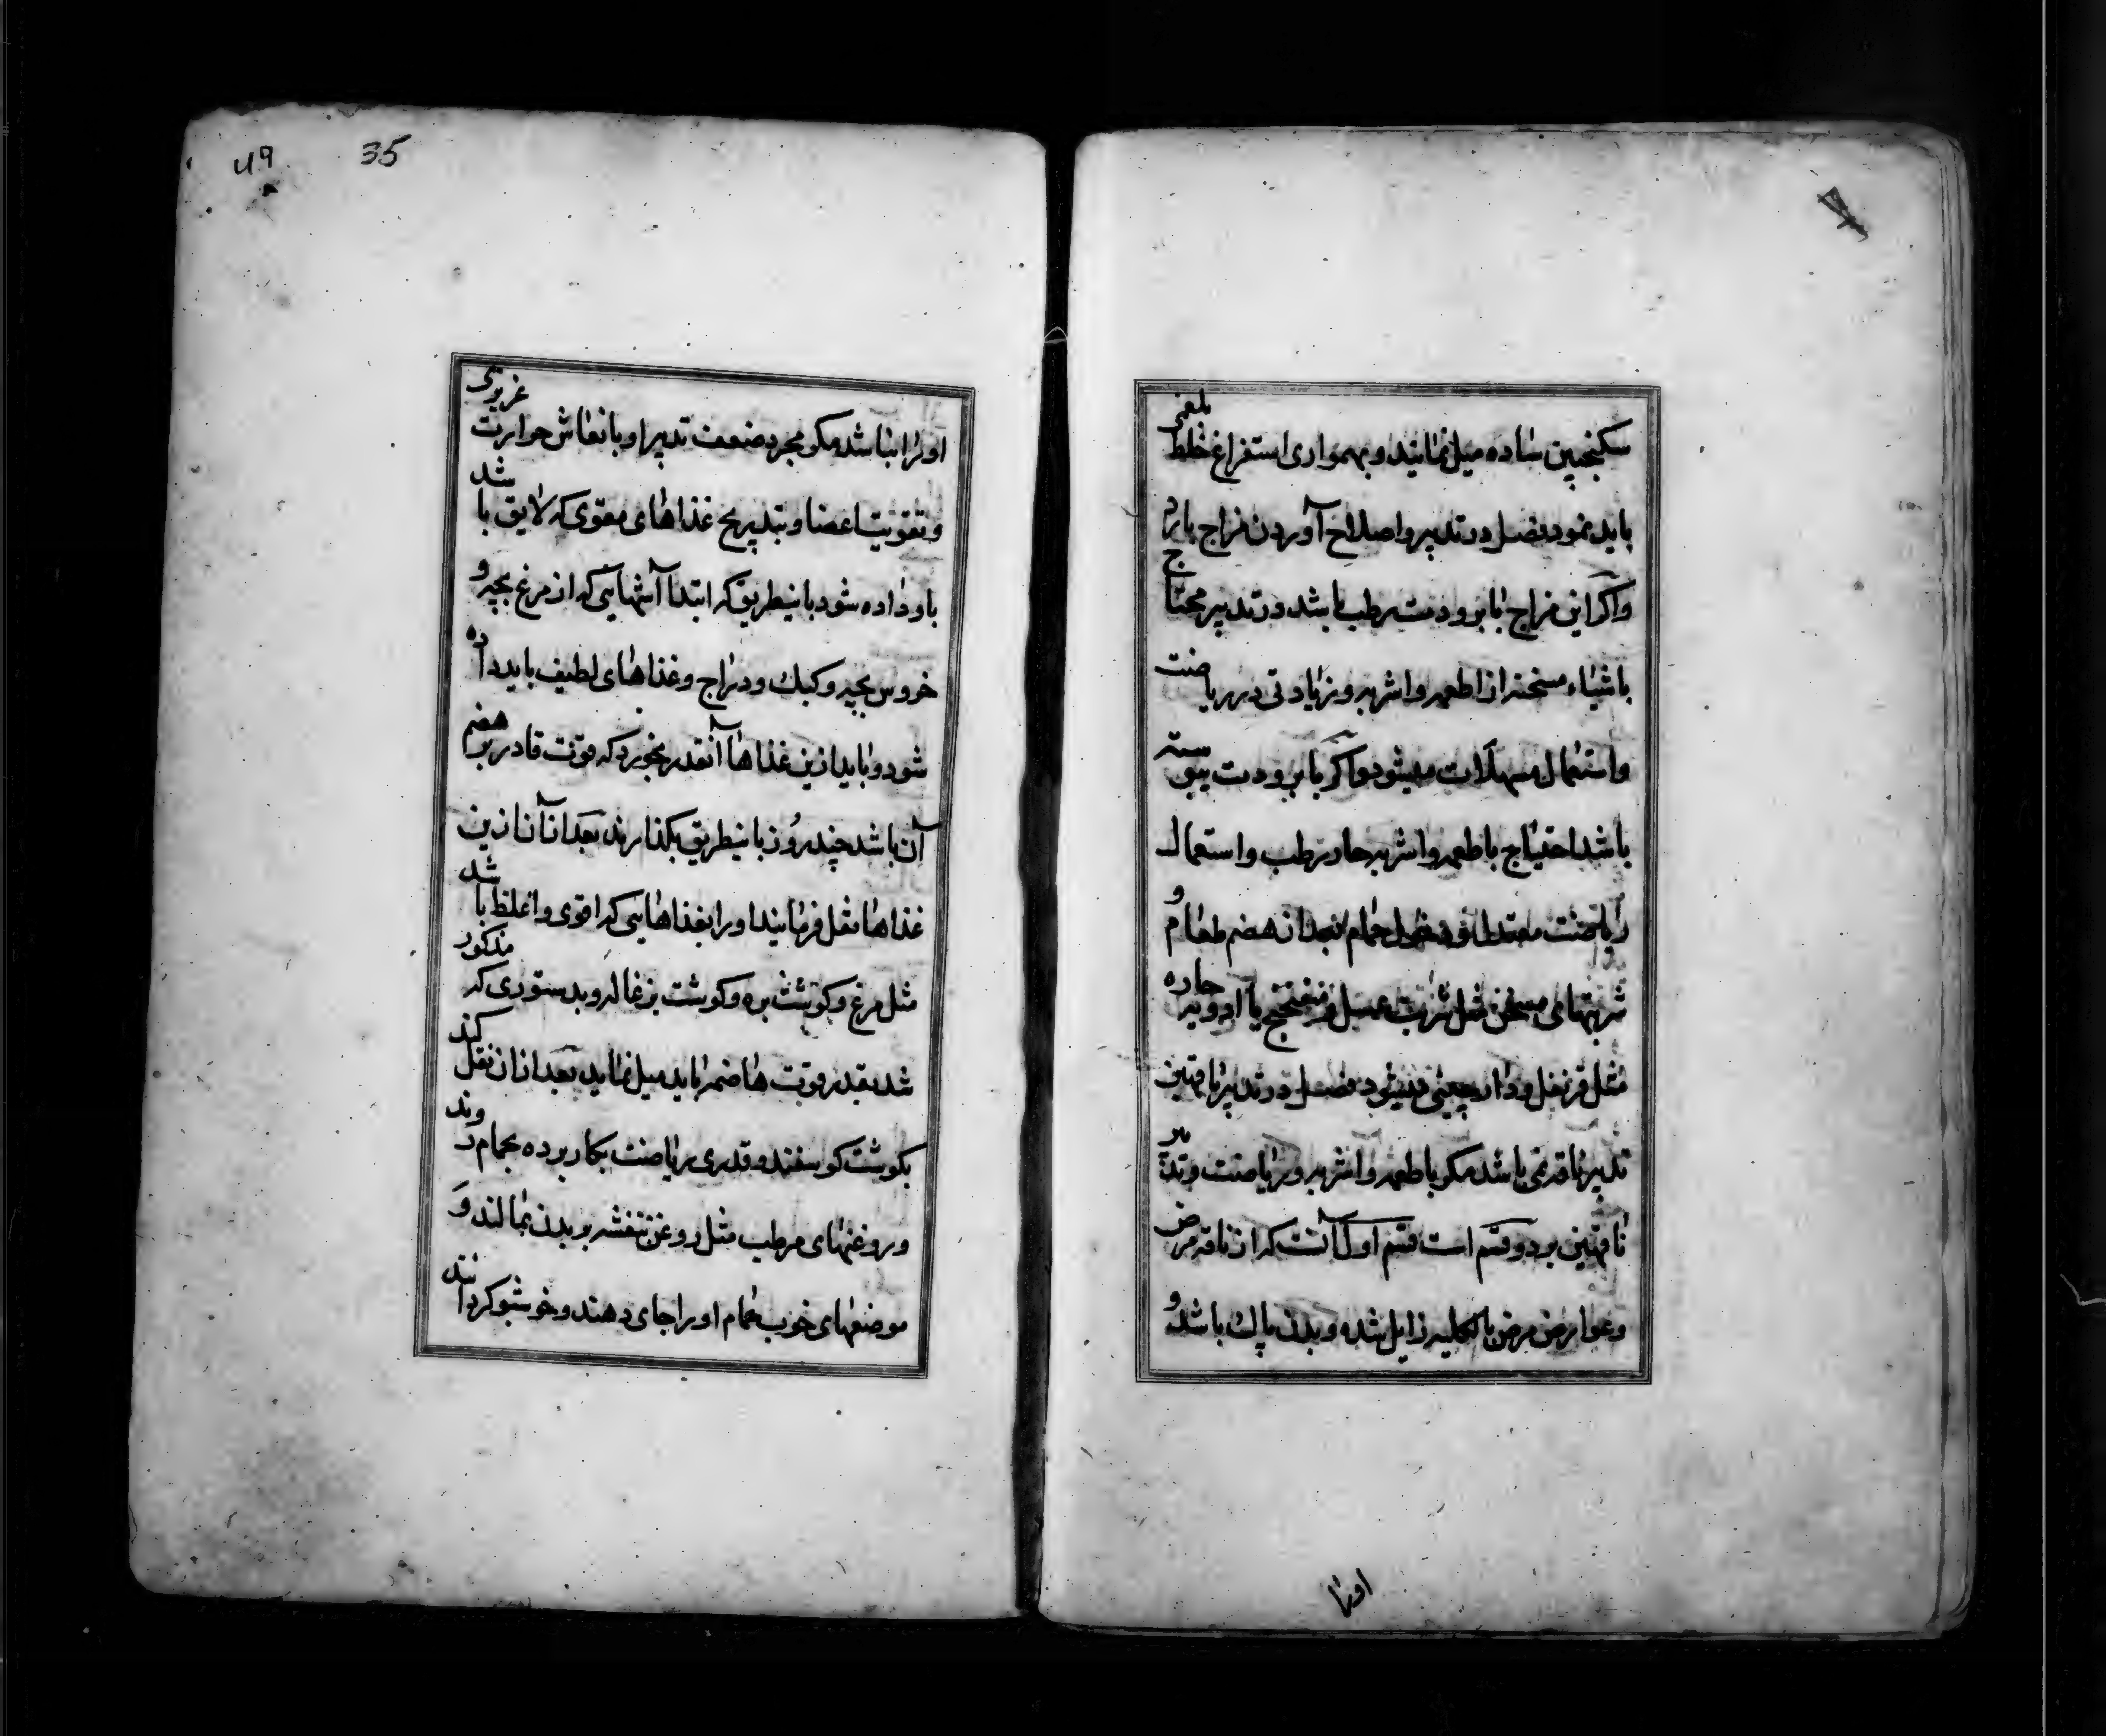 سکنجبین ساده میل نمانید و بهمواری استفراغ خلط بلغمی
باید نمود فصل در تدبیر و اصلاح آوردن مزاج بارد
و اگر این مزاج با برودت رطب باشد در تدبیر محتاج
باشیاء مسخنه از اطعمه و اشربه و زیادتی در ریاضت
و استعمال مسهلات میشود و اگر با برودت یبوسته
باشد احتیاج باطعمه و اشربه حار رطب و استعمال
ریاضت معتدل و دخول حمام بعد از هضم طعام و
شربتهای مسخن مثل شراب عسل و میفختج یا ادویه حاره
مثل قرنفل و دارچینی میشود فصل در تدبیر ناقهین
تدبیر ناقه نمی باشد مکر باطعمه و اشربه و ریاضت و تدبیر
ناقهین بر دو قسم است قسم اول آنست که از ناقه مرض
و عوارض مرض بالکلیه زایل شده و بدن پاک باشد و
اورا
49
35
اورا نباشد مکر مجرد ضعف تدبیر او بانعاش حرارت غریزی
و تقویت اعضا و بتدریج غذاهای مقوی که لایق باشد
باو داده شود باینطریق که ابتدا آشهایی که از مرغ بچه و
خروس بچه و کبک و دراج و غذاهای لطیف باید داده
شود و باید ازین غذاها آنقدر بخورد که قوت قادر بر هضم
آن باشد چند روز باینطریق بکذارند بعد از آن ازین
غذاها نقل فرمانید اورا بغذاهایی که اقوی و اغلظ باشد
مثل مرغ و کوشت بره و کوشت بزغاله و بدستوری که مذکور
شد بقدر قوت هاضمه باید میل نماید بعد از ان نقل کند
بکوشت کوسفند و قدری ریاضت بکار برده بحمام روند
و روغنهای مرطب مثل روغن بنفشه بر بدن بمالند و
موضعهای خوب حمام اورا جای دهند و خوشبو کردانند